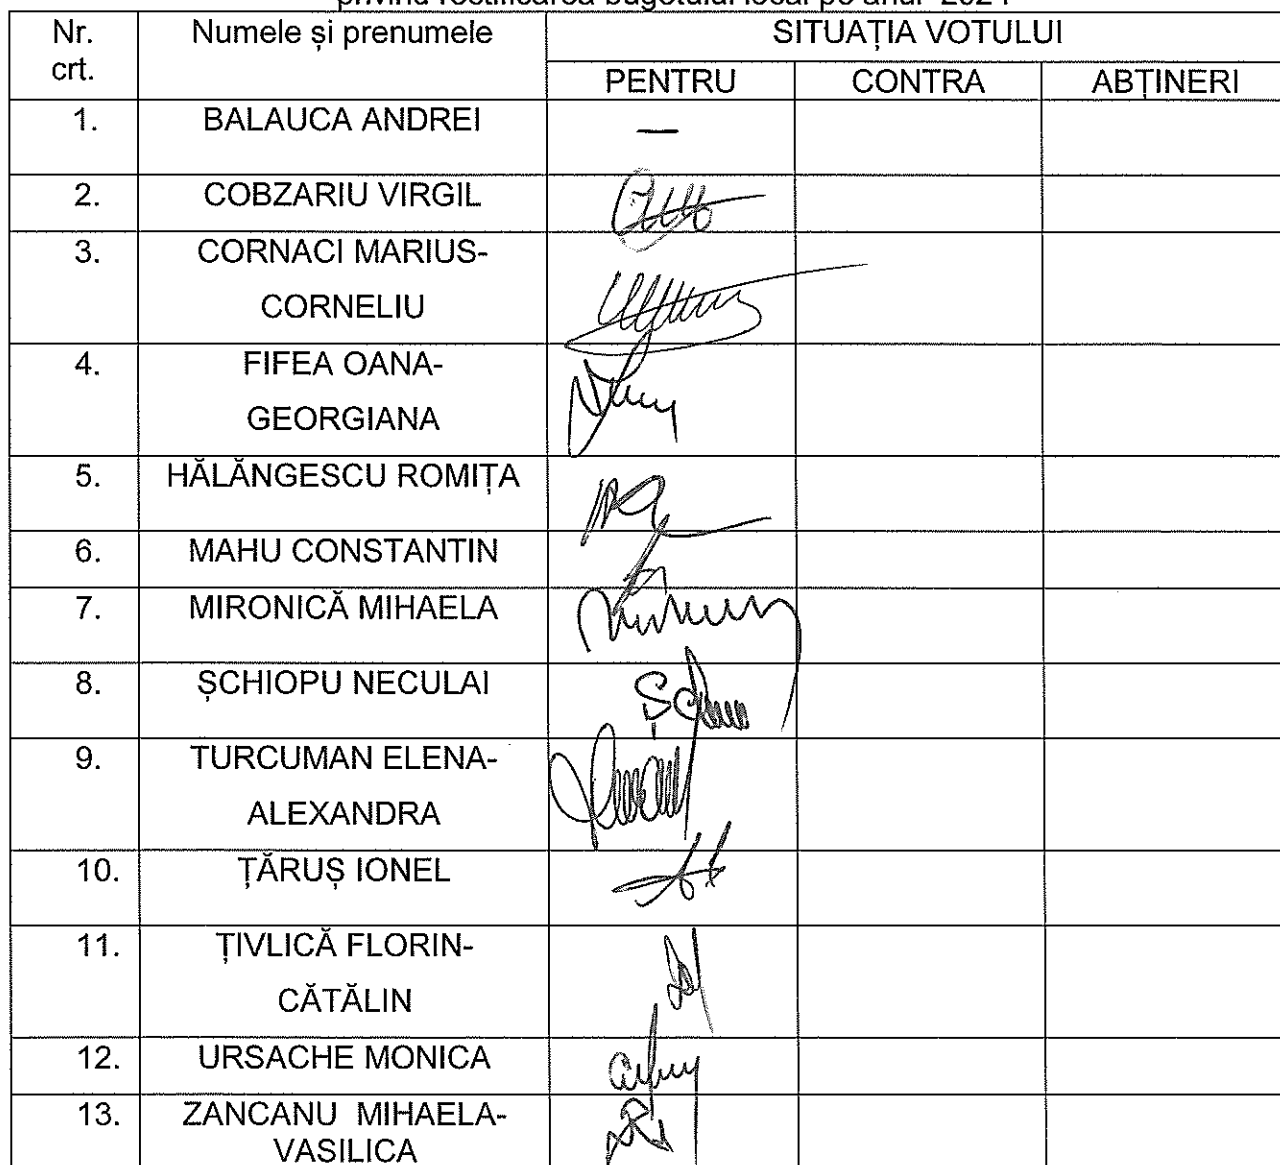 privind rectificarea bugetului local pe anul 2024
Nr. crt. Numele și prenumele SITUAȚIA VOTULUI
PENTRU CONTRA ABȚINERI
1. BALAUCA ANDREI —
2. COBZARIU VIRGIL
3. CORNACI MARIUS-
CORNELIU
4. FIFEA OANA-
GEORGIANA
5. HĂLĂNGESCU ROMIȚA
6. MAHU CONSTANTIN
7. MIRONICĂ MIHAELA
8. ȘCHIOPU NECULAI
9. TURCUMAN ELENA-
ALEXANDRA
10. ȚĂRUȘ IONEL
11. ȚIVLICĂ FLORIN-
CĂTĂLIN
12. URSACHE MONICA
13. ZANCANU MIHAELA-
VASILICA